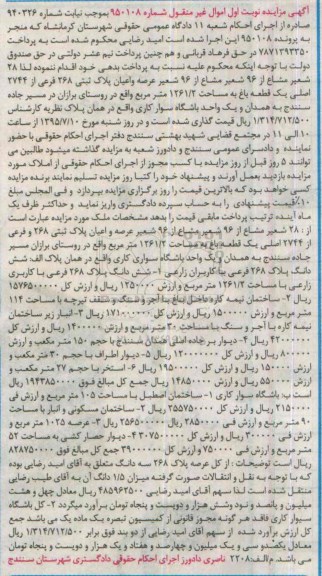 آگهی مزایده نوبت اول اموال غیر منقول شماره ۹۵۰۱۰۸ بموجب نیابت شماره ۹۴۰۳۲۶
صادره از اجرای احکام شعبه ۱۱ دادگاه عمومی حقوقی شهرستان کرمانشاه که منجر
به پرونده ۹۵۰۱۰۸ این اجرا شده است امید رضایی محکوم شده است به پرداخت
۷۸۷۱۳۹۳۳۵۰ در حق فرهاد قربانی و هم چنین پرداخت نیم عشر دولتی در حق صندوق
دولت با توجه اینکه محکوم علیه نسبت به پرداخت بدهی خود اقدام ننموده لذا ۲۸
شعیر مشاع از ۹۶ شعیر مشاع از ۹۶ شعیر عرصه واعیان پلاک ثبتی ۲۶۸ فرعی از ۲۷۴۴
اصلی یک قطعه باغ به مساحت ۱۲۶۱/۲ متر مربع واقع در روستای برازان در مسیر جاده
سنندج به همدان و یک واحد باشگاه سوار کاری واقع در همان پلاک نظریه کارشناس
۱/۳۱۴/۷۱۲/۵۰۰ ریال قیمت گذاری شده است و در روز شنبه مورخ ۱۳۹۵/۷/۱۰ از ساعت
۱۰ الی ۱۱ در مجتمع قضایی شهید بهشتی سنندج دفتر اجرای احکام حقوقی با حضور
نماینده و دادسرای عمومی سنندج و دادورز شعبه به مزایده گذاشته میشود طالبین می
توانند ۵ روز قبل از روز مزایده با کسب مجوز از اجرای احکام حقوقی از املاک مورد
مزایده بازدید بعمل آورند و پیشنهاد خود را کتبا روز مزایده تسلیم نمایند برنده مزایده
کسی خواهد بود که بالاترین قیمت را روز برگزاری مزایده بپردازد و فی المجلس مبلغ
۱۰٪ قیمت پیشنهادی را به حساب سپرده دادگستری واریز نماید و حداکثر ظرف یک
ماه آینده ترتیب پرداخت مابقی قیمت را بدهد مشخصات ملک مورد مزایده عبارت است
از : ۲۸ شعیر مشاع از ۹۶ شعیر مشاع از ۹۶ شعیر عرصه و اعیان پلاک ثبتی ۲۶۸ و فرعی
از ۲۷۴۴ اصلی یک قطعه باغ به مساحت ۱۲۶۱/۲ متر مربع واقع در روستای برازان مسیر
جاده سنندج به همدان و یک واحد باشگاه سواری کاری واقع در همان پلاک الف: شش
دانگ پلاک ۲۶۸ فرعی با کاربران زارعی ۱- شش دانگ پلاک ۲۶۸ فرعی با کاربری
زارعی با مساحت ۱۲۶۱۲ متر مربع و ارزش ۱۲۵۰۰۰ ریال و ارزش کل ۱۵۷۶۵۰۰۰۰۰
ریال ۲- ساختمان نیمه کاره داخل باغ با آجر و سنگ و سقف تیرچه با مساحت ۱۱۴
متر مربع و ارزش ۱۵۰۰۰۰۰ ریال و ارزش کل ۱۷۱۰۰۰۰۰۰ ریال ۳- انبار زیر ساختمان
نیمه کاره با آجر و سنگ با مساحت ۳۰ متر مربع و ارزش ۱۴۰۰۰۰۰ ریال و ارزش کل
۴۲۰۰۰۰۰۰ ریال ۴- دیوار بر جاده اصلی همدان سنندج با حجم ۱۵۰ متر مکعب و ارزش
۸۰۰۰۰۰ ریال و ارزش کل ۱۲۰۰۰۰۰۰۰ ریال ۵- دیوار اطراف با حجم ۳۰ متر مکعب و
ارزش ۶۵۰۰۰۰ ریال و ارزش کل ۱۹۵۰۰۰۰۰ ریال ۶- استخر با حجم ۲۷ متر مکعب و
ارزش ۵۵۰۰۰۰ ریال و ارزش کل ۱۴۸۵۰۰۰۰ ریال جمع کل مبالغ فوق ۱۹۴۳۸۵۰۰۰۰ ریال
است ب: باشگاه سوار کاری ۱- ساختمان اصطبل با مساحت ۱۰۵ متر مربع و ارزش فی
۲۱۵۰۰۰۰ ریال و ارزش کل ۲۵۵۷۵۰۰۰۰ ریال ۲- ساختمان مسکونی و انبار با مساحت
۹۰ متر مربع و ارزش فی ۲۸۵۰۰۰۰ ریال ۲۵۶۵۰۰۰۰۰ ریال ۳- عرصه ۱۰۲۵ متر مربع و
ارزش فی ۳۰۰۰۰۰ و ارزش کل ۳۰۷۵۰۰۰۰۰ ۴- دیوار حصار کشی به مساحت ۵۲
متر مربع و ارزش فی ۷۵۰۰۰۰ ریال و ارزش کل ۳۹۰۰۰۰۰۰ جمع کل مبالغ فوق ۸۲۸۷۵۰۰۰۰
ریال است توضیحات : از کل عرصه پلاک ۲۶۸ سه دانگ متعلق به آقای امید رضایی بوده
که با توجه به نقل و انتقالات صورت گرفته میزان ۱/۵ دانگ آن به آقای طیب رضایی
منتقل شده است لذا سهم آقای امید رضایی ۴۸۵۹۶۲۵۰۰ ریال معادل چهل و هشت
میلیون و پانصد و نود وشش هزار و دویست و پنجاه تومان برآورد میگردد ۲- کل باشگاه
سیوار کاری فاقد هر گونه مجوز قانونی از کمیسیون تبصره یک ماده یک می باشد جمع
کل ارزش برآورد شده از سهم آقای امید رضایی از دو بند فوق برابر ۱/۳۱۴/۷۱۲/۵۰۰ ریال
معادل یکصد و سی و یک میلیون و چهارصد و هفتاد و یک هزار و دویست و پنجاه تومان
می باشد. م الف ۲۲۰۸ ناصری دادورز اجرای احکام حقوقی دادگستری شهرستان سنندج